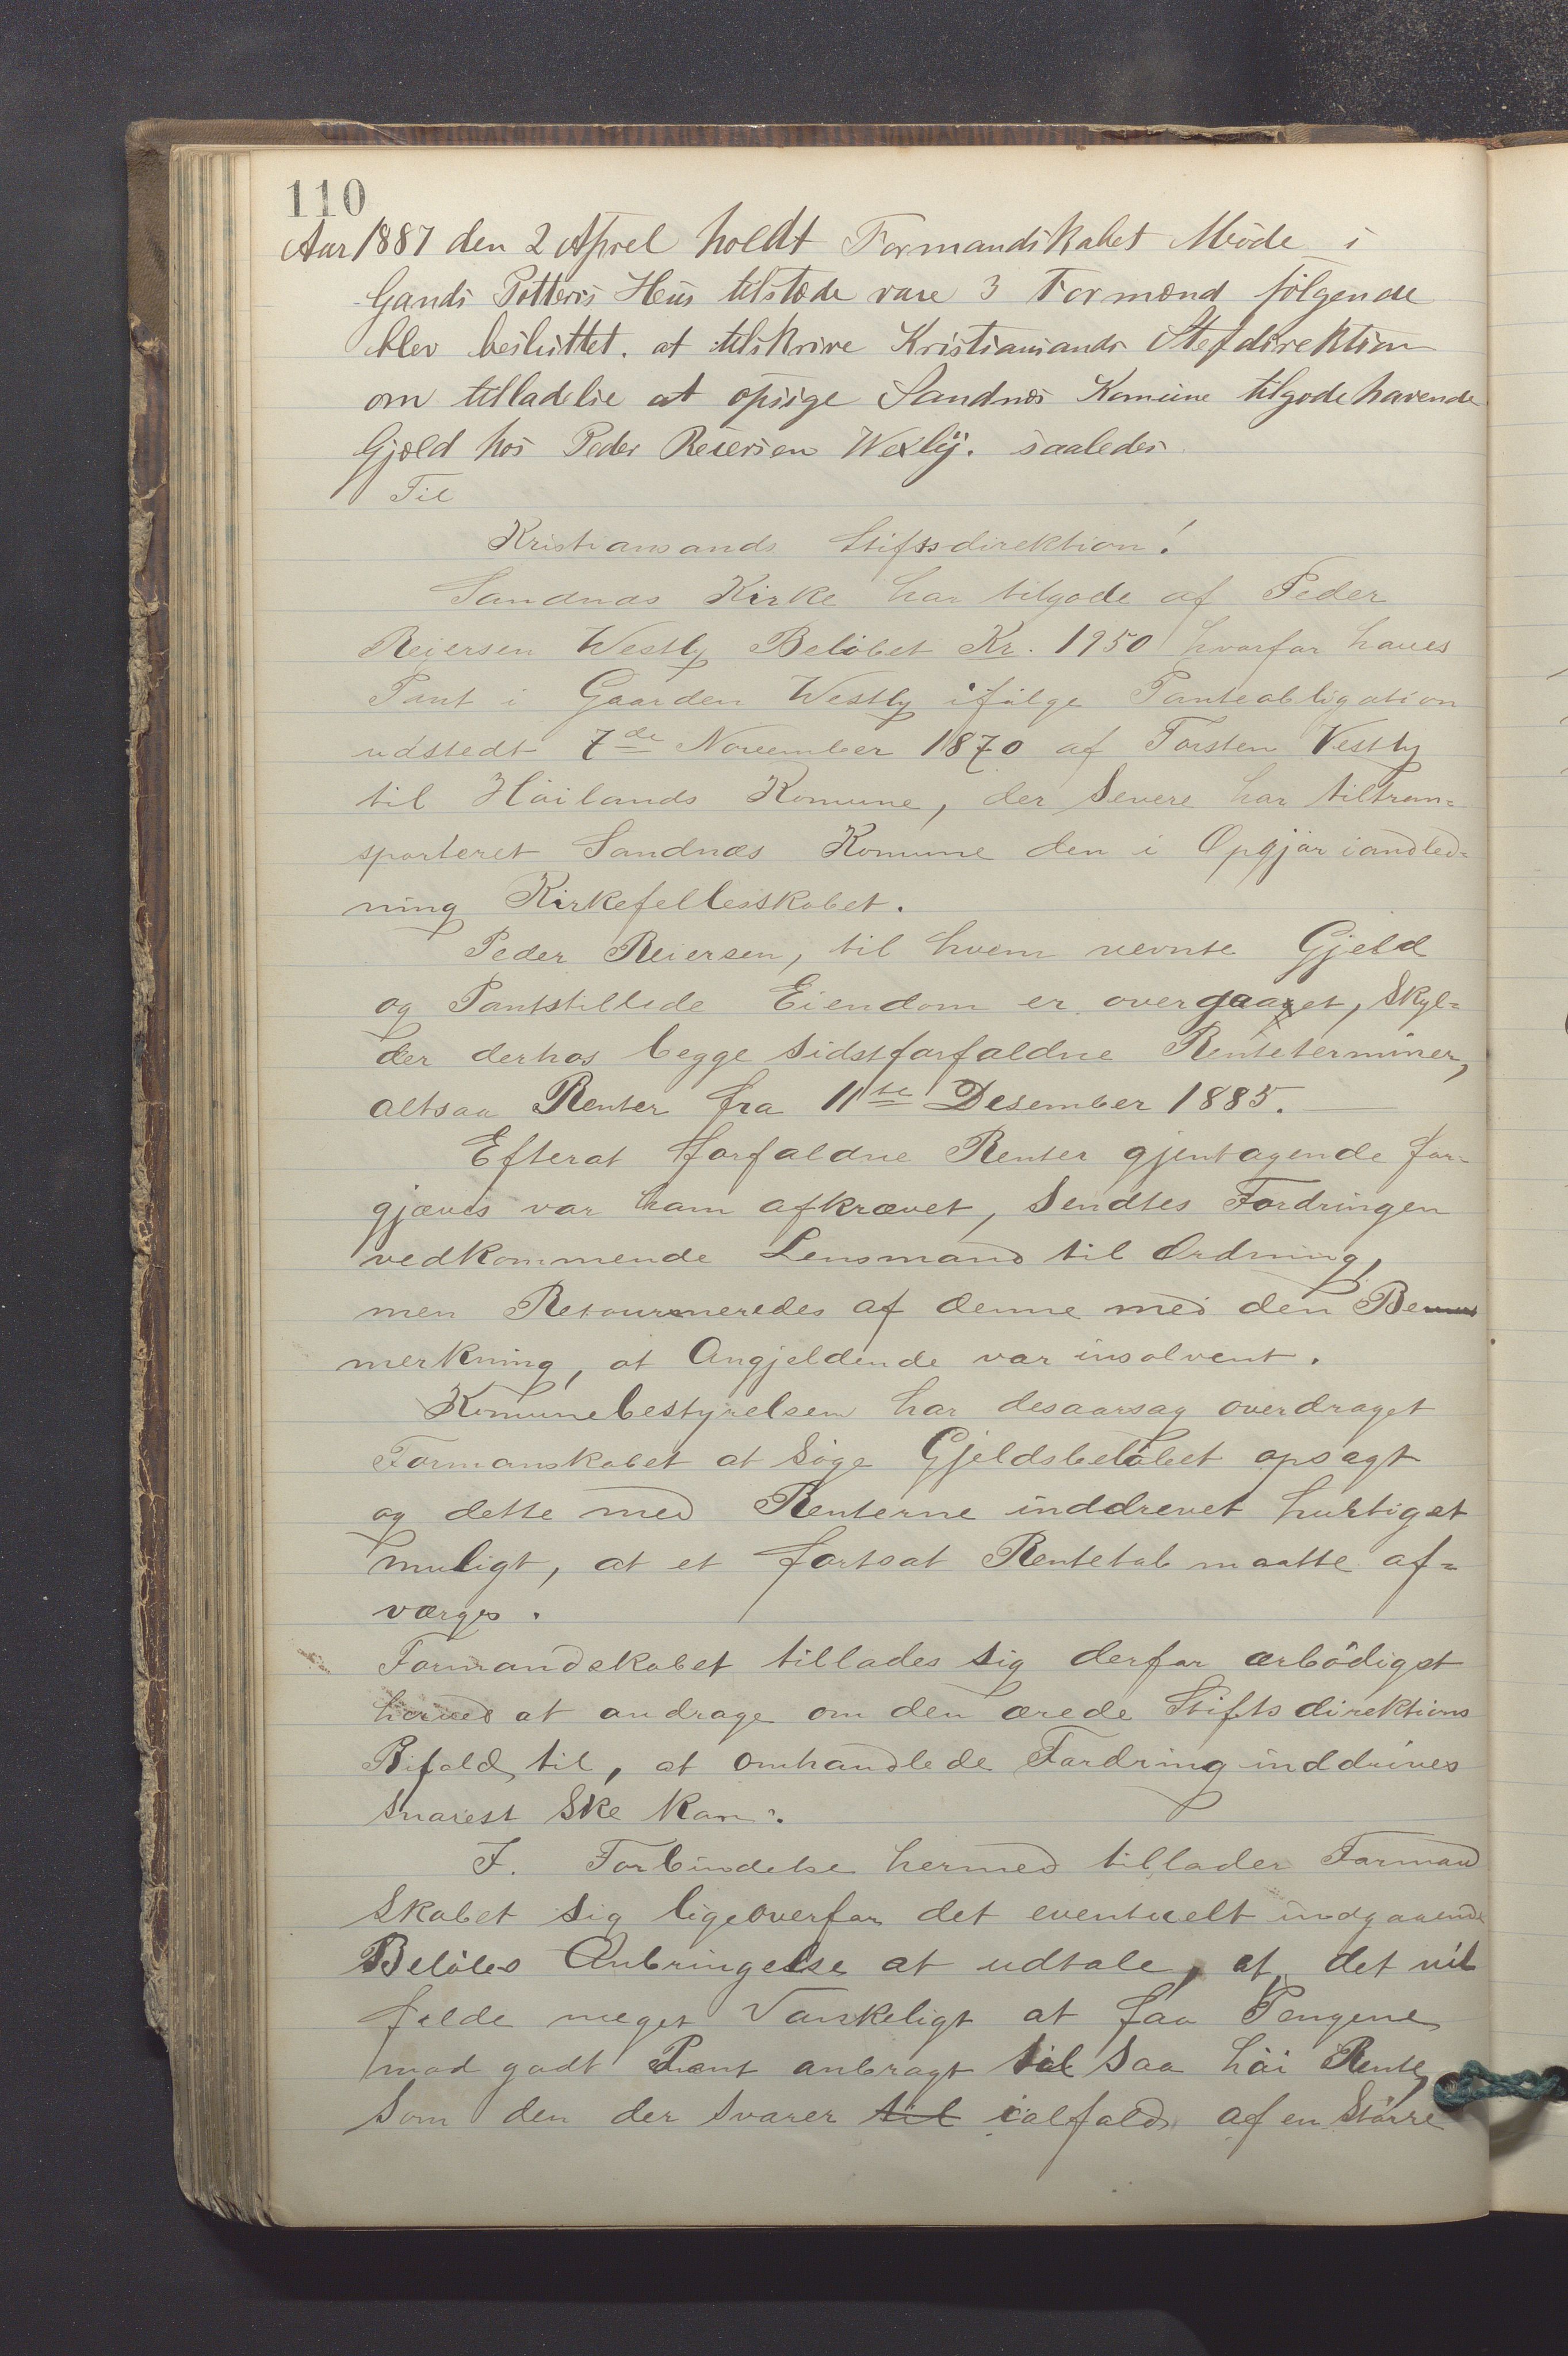 110
Aar 1887 den 2 Aprel holdt Formandskabet Möde i
Gands Potteris Hus tilstede vare 3 Formænd følgende
blev besluttet. at tilskrive Kristiansands Stefdirektion
om tilladelse at opsige Sandnæs Komune tilgodehavende
Gjæld hos Peder Reiersen Wexlÿ. saaledes
Til
Kristiansands Stiftsdirektion!
Sandnæs Kirke har tilgode af Peder
Reiersen Westly Beløbet Kr. 1950 hvorfor haves
Pant i Gaarden Westly ifølge Panteobligation
udstedt 7de November 1870 af Torsten Vestly
til Høilands Komune, der Senere har tiltran=
sporteret Sandnæs Komune den i Opgjør iandled=
ning Kirkefellesskabet.
Peder Reiersen, til hvem nevnte Gjeld
og Pantstillede Eiendom er overgaaet, Skyl=
der derhos begge sidstforfaldne Renteterminer,
altsaa Renter fra 11te Desember 1885.
Efterat forfaldne Renter gjentagende for=
gjæves var ham afkrævet, Sendtes Fordringen
vedkommende Lensmand til Ordning,
men Retourneredes af denne med den Be
merkning, at Angjeldende var insolvent.
Komunebestyrelsen har desaarsag overdraget
Formanskabet at Søge Gjeldsbeløbet opsagt
og dette med Renterne inddrevet hurtigst
muligt, at et fortsat Rentetab maatte af=
værges.
Formandskabet tillades sig derfor ærbödigst
herved at andrage om den ærede Stiftsdirektions
Bifald til, at omhandlede Fordring inddrives
snarest Ske Kan.
I. Forbindelse hermed tillader Formand
Skabet sig ligeoverfor det eventuelt indgaaende
Beløbs Anbringelse at udtale, at det vil
falde meget Vanskeligt at faa Pengene
mod godt Pant anbragt til saa høi Rente,
Som den der svarer til ialfald af en Større